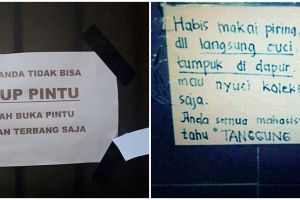 ANDA TIDAK BISA
UP PINTU
AH BUKA PINTU
AN TERBANG SAJA
Habis makai piring
dll langsung cuci
tumpuk di dapur
mau nyuci koleks
saja.
Anda semua mahasis
tahu "TANGGUNG